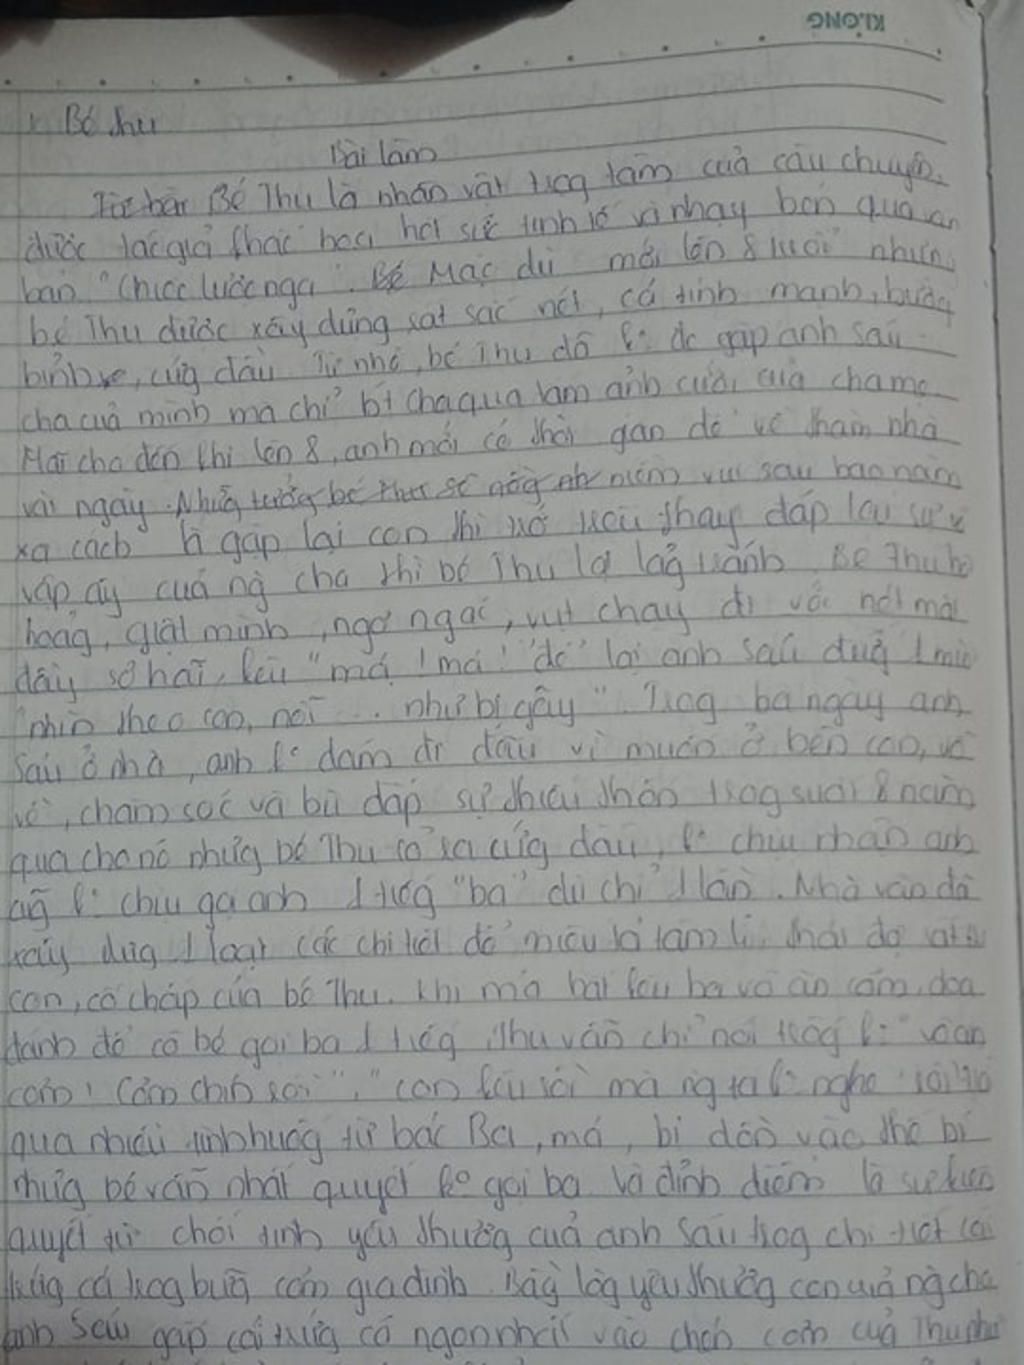 KLONG
Bé Thu
Bài làm
Bé Thu là nhân vật trog tâm của câu chuyện,
được tác giả khác hoạ hết sức tinh tế và nhạy bén qua văn
bản "Chiếc lược ngà". Mặc dù mới lên 8 tuổi nhưng
bé Thu được xây dựng sắc nét, cá tính mạnh, bướg
bỉnh, cứg đầu. Từ nhỏ, bé Thu đã k° đc gặp anh Sáu
cha của mình mà chỉ bt cha qua tấm ảnh cưới của cha mẹ
Mãi cho đến khi lên 8, anh mới có thời gian để về thăm nhà
vài ngày. Nhưg tưởg bé niềm vui sau bao năm
xa cách là gặp lại con thì thay đáp lại sự
vấp của ng cha thì bé Thu lại lảg tránh. Bé Thu
hoảg, giật mình, ngơ ngác, vụt chạy đi với nét mặt
đầy sợ hãi, kêu "má! má!" để lại anh Sáu đứg 1 mìn
"nhìn theo con, nỗi ... như bị gãy". Trog ba ngày anh
Sáu ở nhà, anh k° dám đi đâu vì muốn ở bên con, vỗ
về, chăm sóc và bù đắp sự thiếu thốn trog suốt 8 năm
qua cho nó nhưg bé Thu tỏ ra cứg đầu, k° chịu nhận anh
cũg k° chịu gọi anh 1 tiếg "ba" dù chỉ 1 lần. Nhà văn đã
xây dựg 1 loạt các chi tiết để miêu tả tâm lí, thái độ
con, cố chấp của bé Thu. Khi má bắt kêu ba vô ăn cơm, doạ
đánh để cô bé gọi ba 1 tiếg, Thu vẫn chỉ nói "vô ăn
cơm! Cơm chín rồi", "con kêu rồi mà ng ta k° nghe"
qua nhiều tình huốg từ bác Ba, má, bị dồn vào thế bí
nhưg bé vẫn nhất quyết k° gọi ba. Và đỉnh điểm là sự kiên
quyết từ chối tình yêu thươg của anh Sáu trog chi tiết cái
trứg cá trog bữa cơm gia đình. Bằg lòg yêu thươg con của ng cha
anh Sáu gắp cái trứg cá ngon nhất vào chén cơm của Thu